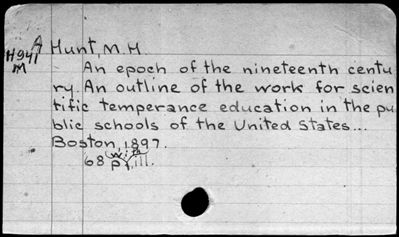 A Hunt, M. H.
H941
M
An epoch of the nineteenth centu
ry. An outline of the work for scien
tific temperance education in the pu
blic schools of the United States...
Boston, 1897.
68 p., ill.